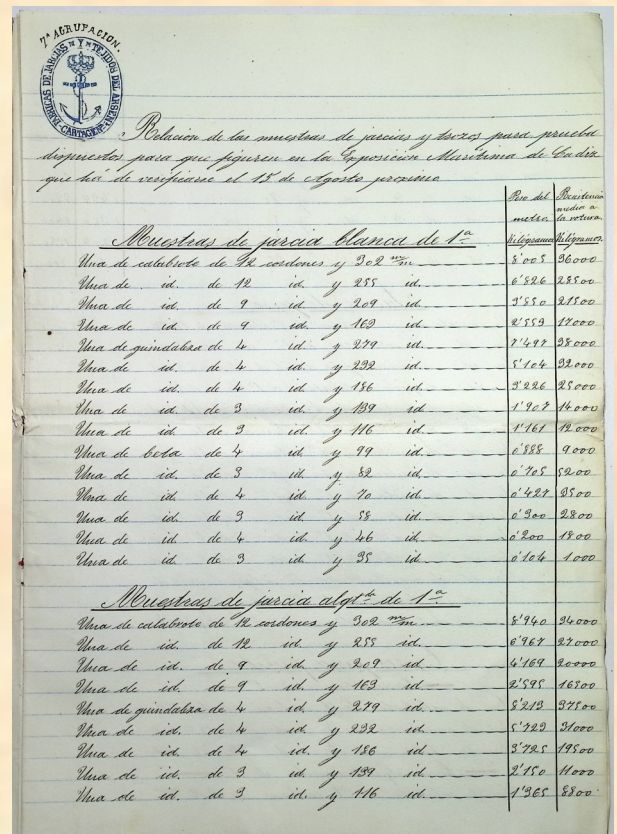 7ª AGRUPACION.
FABRICAS DE JARCIAS Y TEJIDOS DEL ARSENAL
CARTAGENA
Relacion de las muestras de jarcias y trozos para prueba
dispuestos para que figuren en la Exposicion Marítima de Cadiz
que há de verificarse el 15 de Agosto proximo
Peso del metro. Kilógramos Resistencia media a la rotura. Kilógramos.
Muestras de jarcia blanca de 1ª
Una de calabrote de 12 cordones y 302 m/m 8'005 36000
Una de id. de 12 id. y 255 id. 6'826 28500
Una de id. de 9 id. y 209 id. 3'850 21500
Una de id. de 9 id. y 163 id. 2'553 17000
Una de guindaleza de 4 id. y 279 id. 7'497 38000
Una de id. de 4 id. y 232 id. 5'104 32000
Una de id. de 4 id. y 186 id. 3'226 25000
Una de id. de 3 id. y 139 id. 1'907 14000
Una de id. de 3 id. y 116 id. 1'161 12000
Una de beta de 4 id. y 99 id. 0'888 9000
Una de id. de 3 id. y 82 id. 0'705 5200
Una de id. de 4 id. y 70 id. 0'427 3500
Una de id. de 3 id. y 58 id. 0'300 2800
Una de id. de 4 id. y 46 id. 0'200 1800
Una de id. de 3 id. y 35 id. 0'104 1000
Muestras de jarcia alqtda de 1ª
Una de calabrote de 12 cordones y 302 m/m 8'940 34000
Una de id. de 12 id. y 255 id. 6'967 27000
Una de id. de 9 id. y 209 id. 4'169 20000
Una de id. de 9 id. y 163 id. 2'595 16500
Una de guindaleza de 4 id. y 279 id. 8'213 37500
Una de id. de 4 id. y 232 id. 5'723 31000
Una de id. de 4 id. y 186 id. 3'725 19500
Una de id. de 3 id. y 139 id. 2'150 11000
Una de id. de 3 id. y 116 id. 1'365 8800